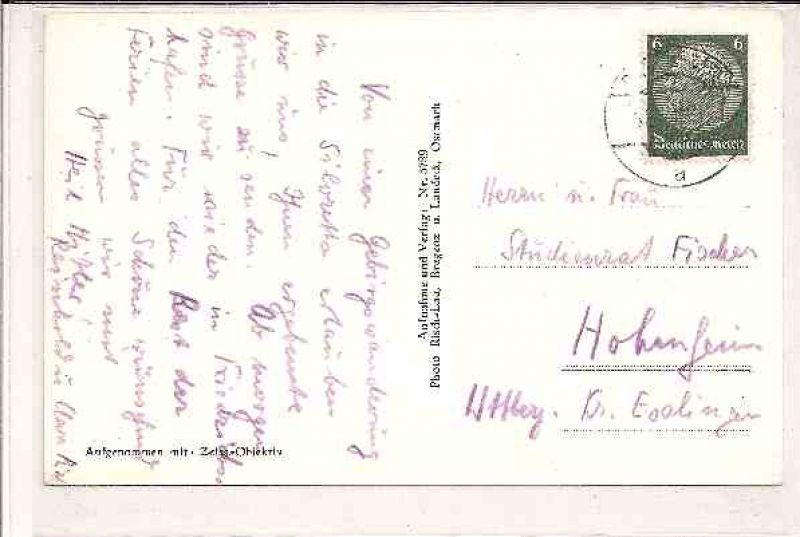 Von einer Gebirgswanderung
in die Silvretta erlauben
wir uns, Ihnen ergebenste
Grüsse zu senden. Ab morgen
sind wir wieder in Friedrichs-
hafen. Für den Rest der
Ferien alles Schöne wünschend
grüssen wir mit
Heil Hitler!
Reinhold u. Clara
Aufgenommen mit Zeiss-Objektiv
Aufnahme und Verlag: Nr. 5789
Photo Risch-Lau, Bregenz u. Landeck, Ostmark
6 6
Deutsches Reich
a
Herrn u. Frau
Studienrat Fischer
Hohenheim
Württbg. Kr. Esslingen